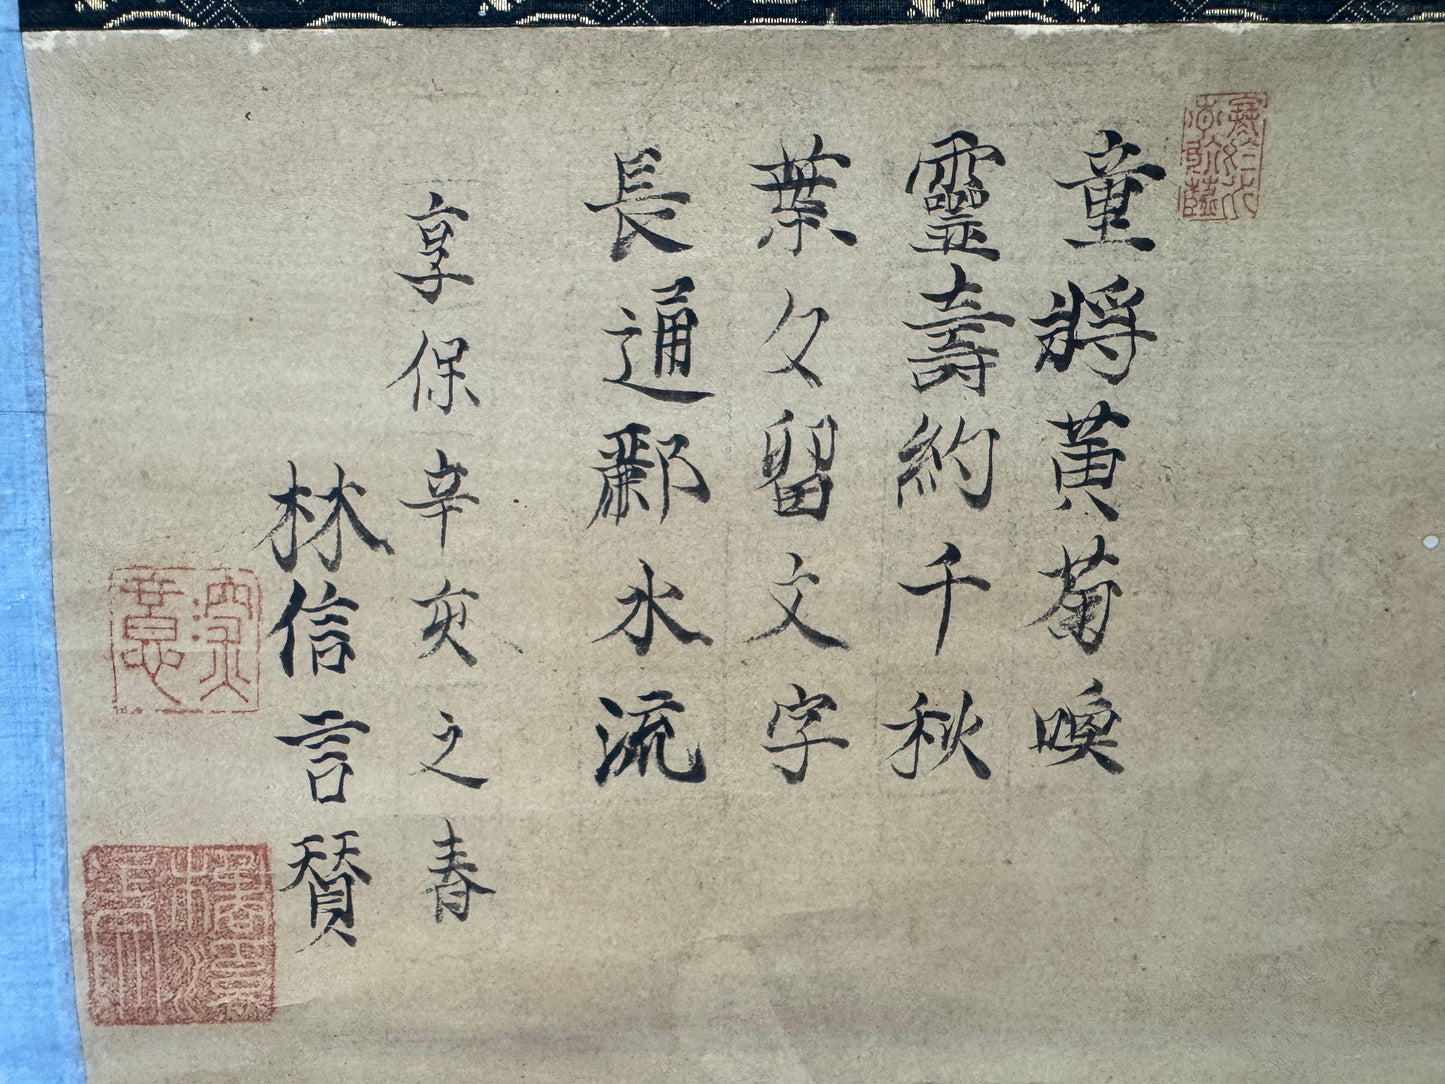 童將黄菊喚
靈壽約千秋
葉久留文字
長通酈水流
享保辛亥之春
林信言賛